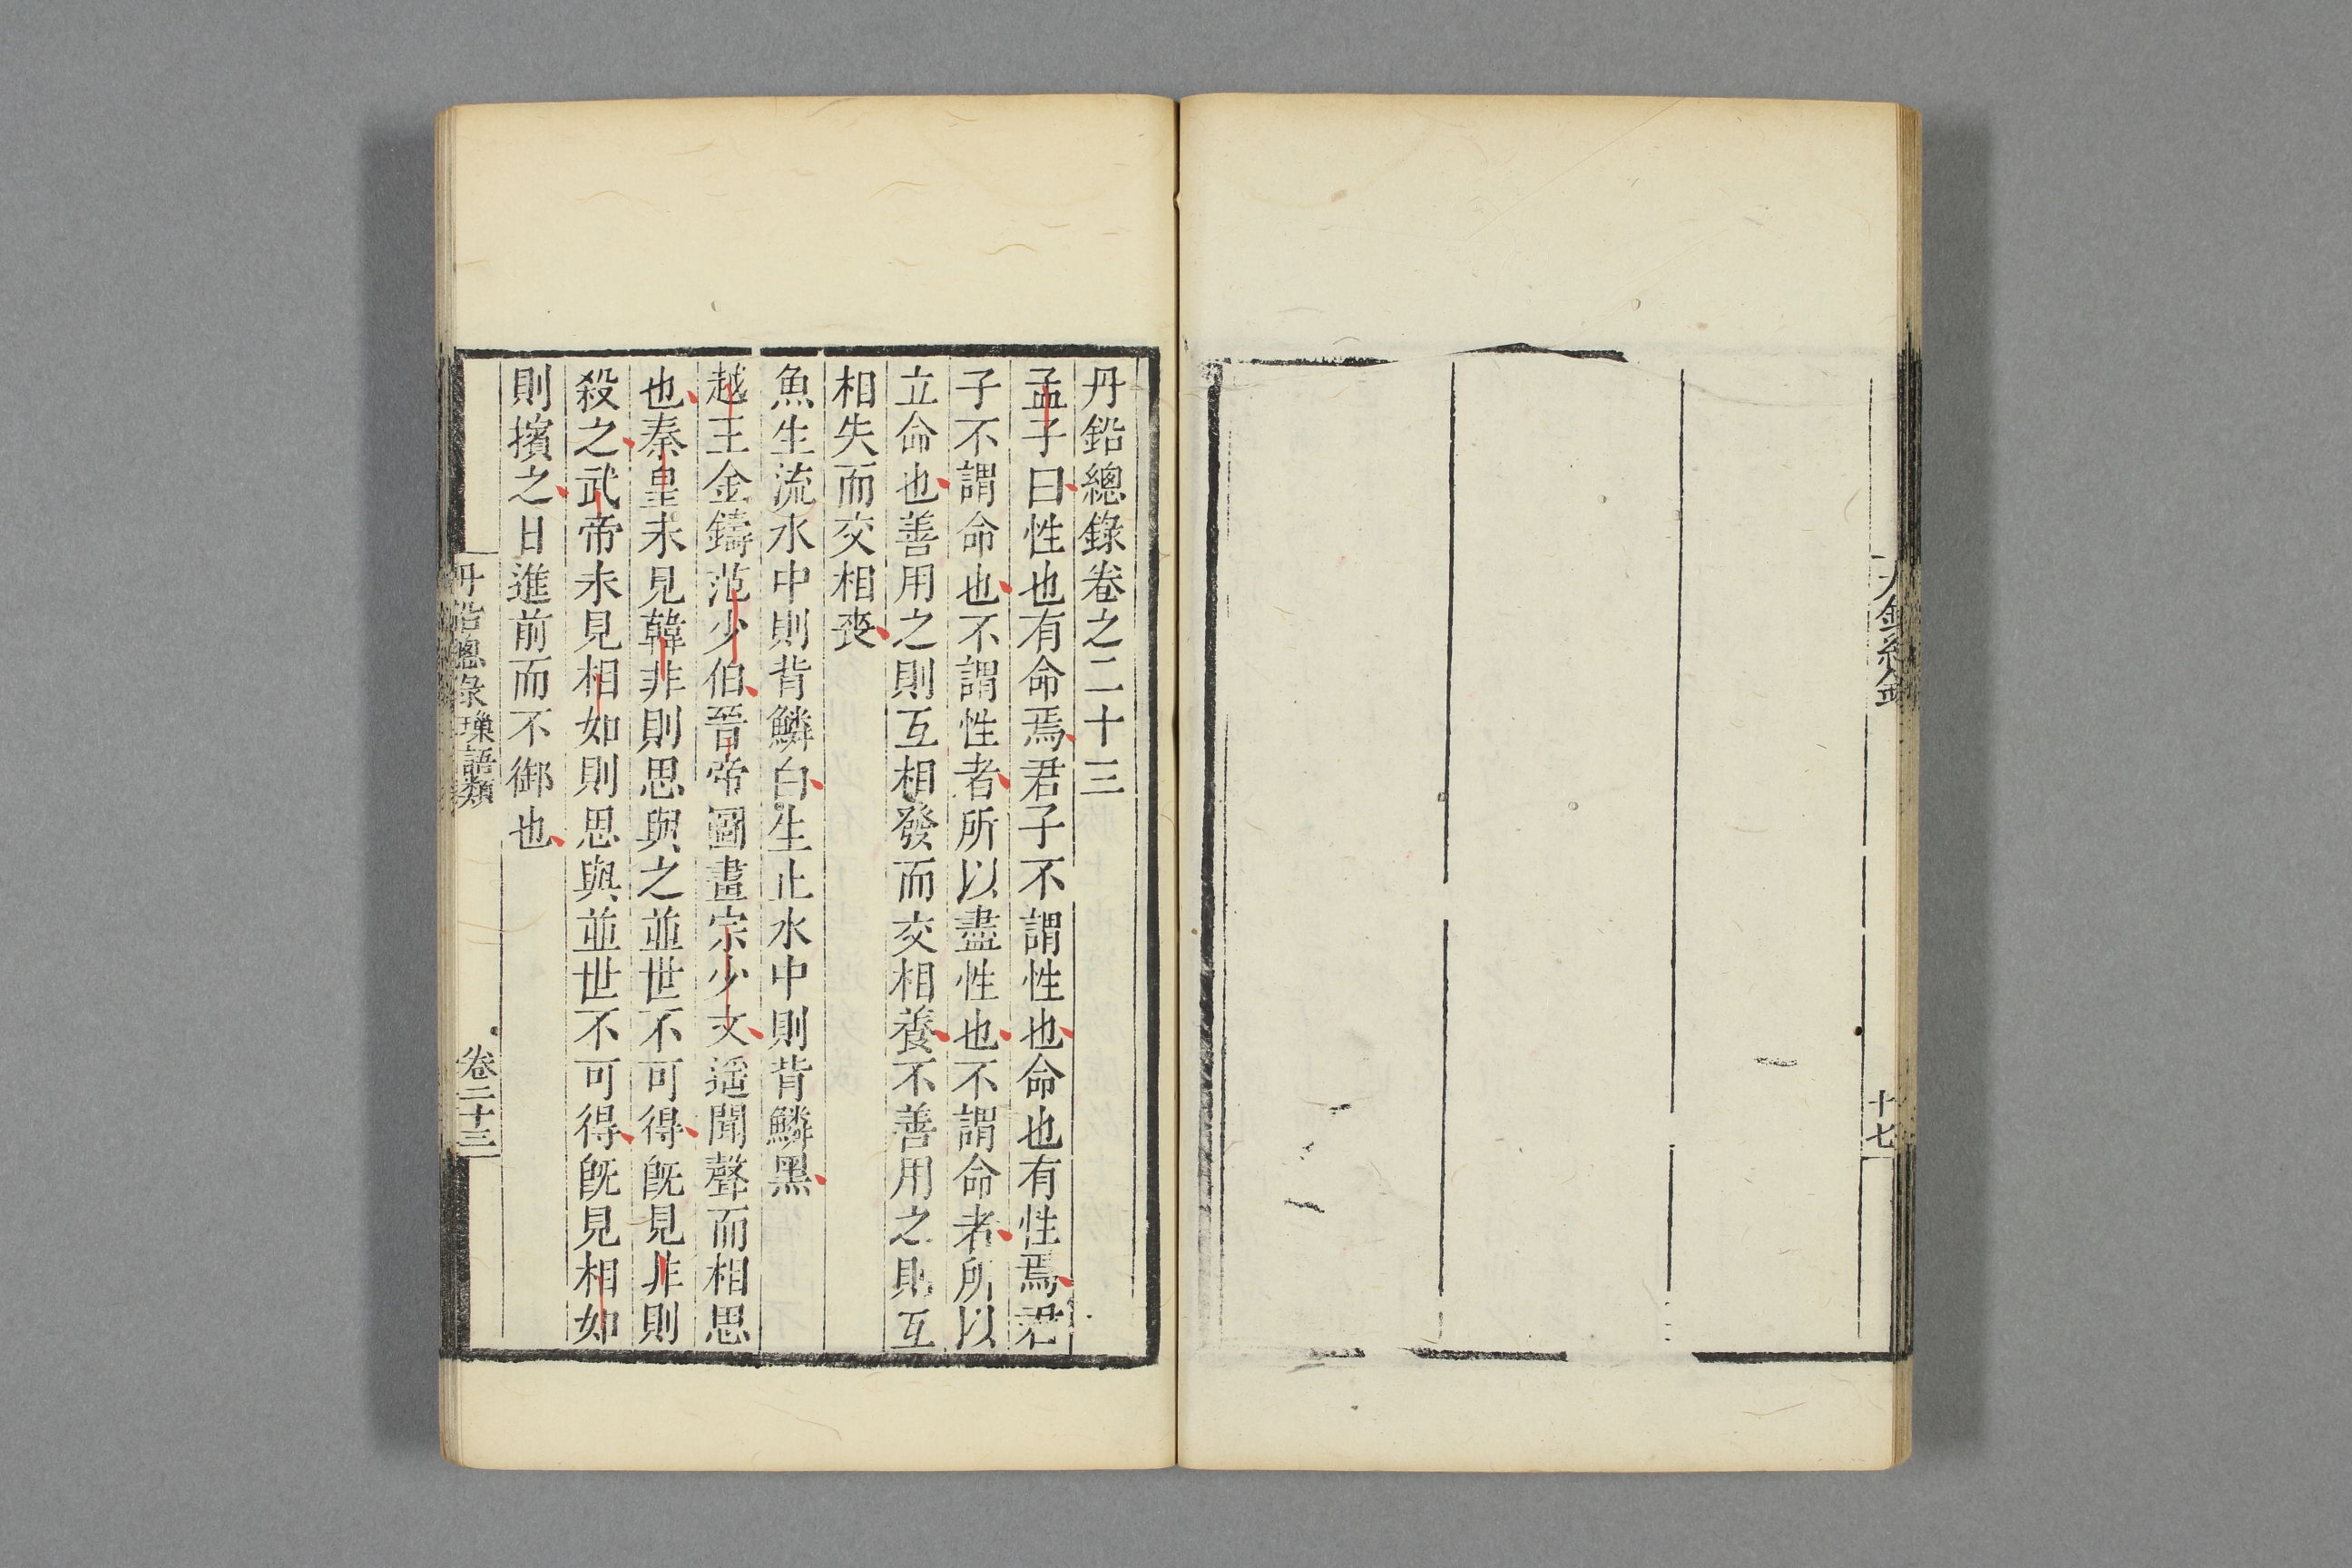 十七
丹鉛總錄卷之二十三
孟子曰性也有命焉君子不謂性也命也有性焉君
子不謂命也不謂性者所以盡性也不謂命者所以
立命也善用之則互相發而交相養不善用之則互
相失而交相喪
魚生流水中則背鱗白生止水中則背鱗黑
越王金鑄范少伯晉帝圖畫宗少文遥聞聲而相思
也秦皇未見韓非則思與之並世不可得旣見非則
殺之武帝未見相如則思與並世不可得旣見相如
則擯之日進前而不御也
丹鉛總錄 璅語類 卷二十三